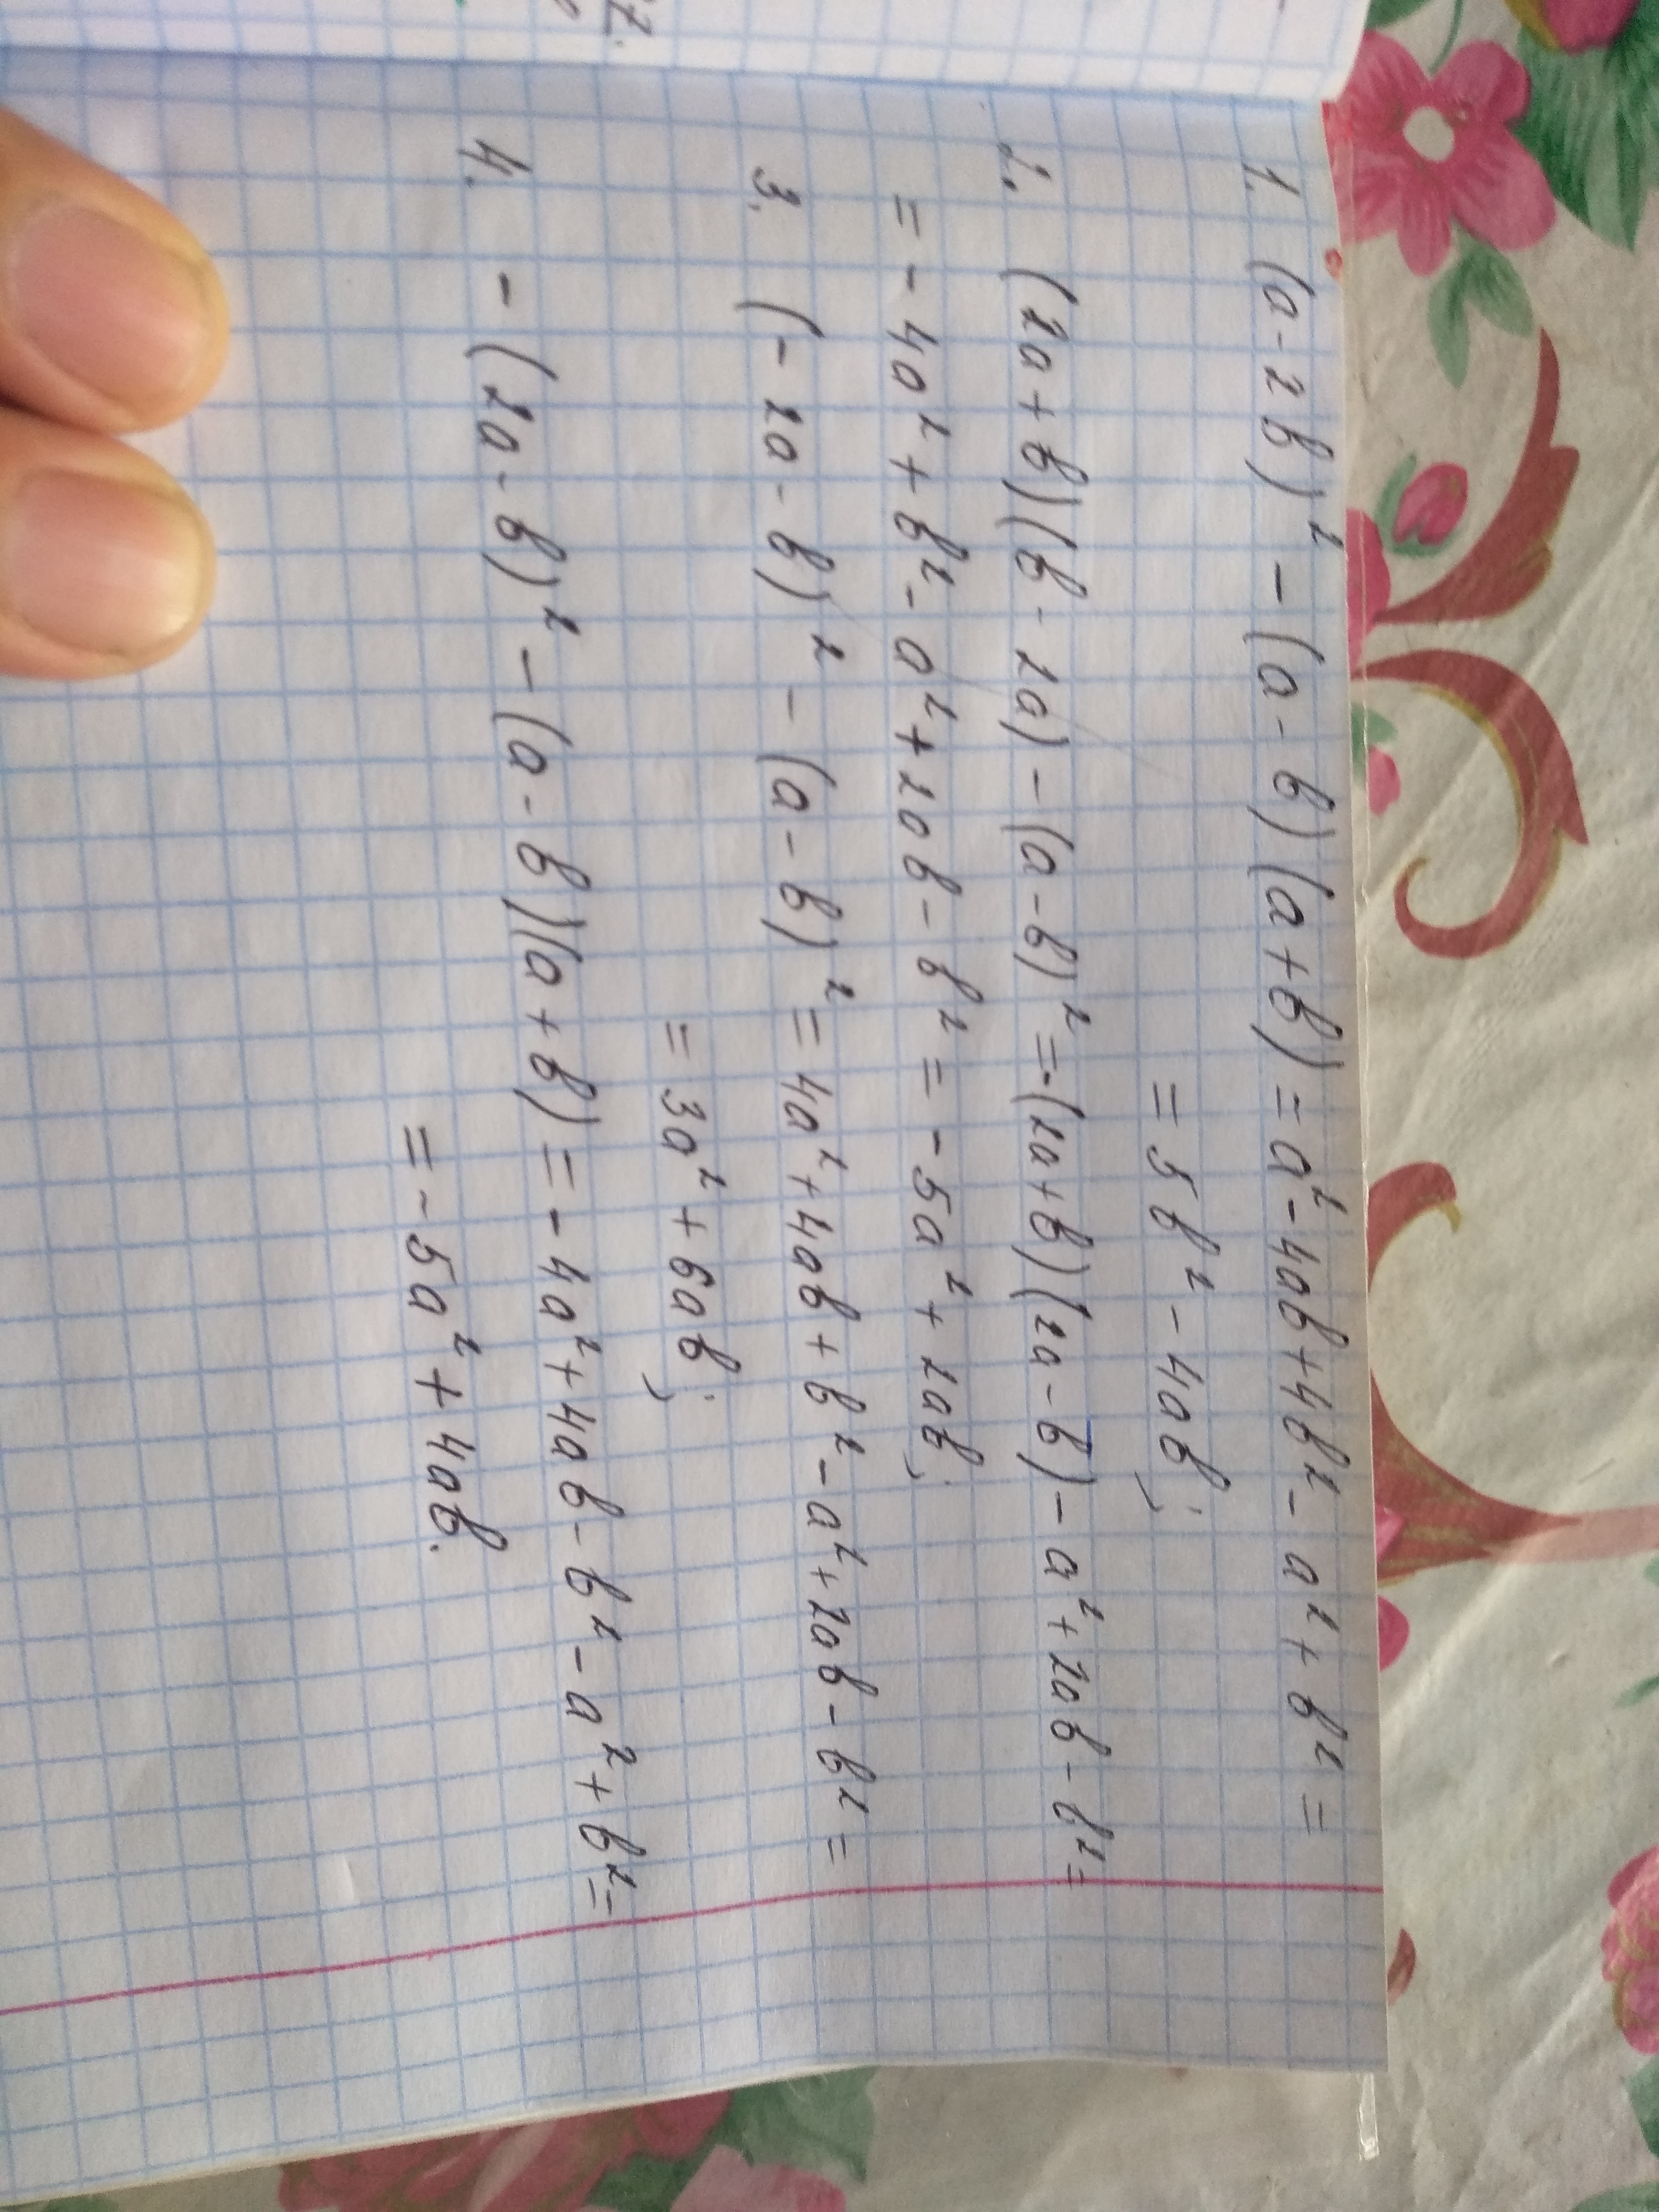 1. (a-2b)² - (a-b)(a+b) = a²-4ab+4b²-a²+b² =
= 5b² - 4ab;
2. (2a+b)(b-2a) - (a-b)² = -(2a+b)(2a-b) - a²+2ab-b² =
= -4a²+b²-a²+2ab-b² = -5a²+2ab;
3. (-2a-b)² - (a-b)² = 4a²+4ab+b²-a²+2ab-b² =
= 3a²+6ab;
4. -(2a-b)² - (a-b)(a+b) = -4a²+4ab-b²-a²+b² =
= -5a²+4ab.